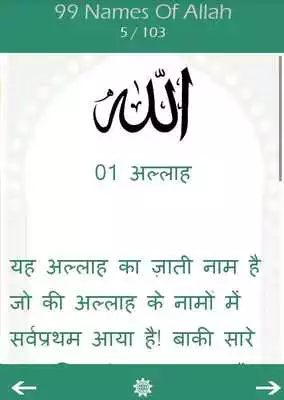 99 Names Of Allah
5 / 103
الله
01 अल्लाह
यह अल्लाह का ज़ाती नाम है
जो की अल्लाह के नामों में
सर्वप्रथम आया है! बाकी सारे